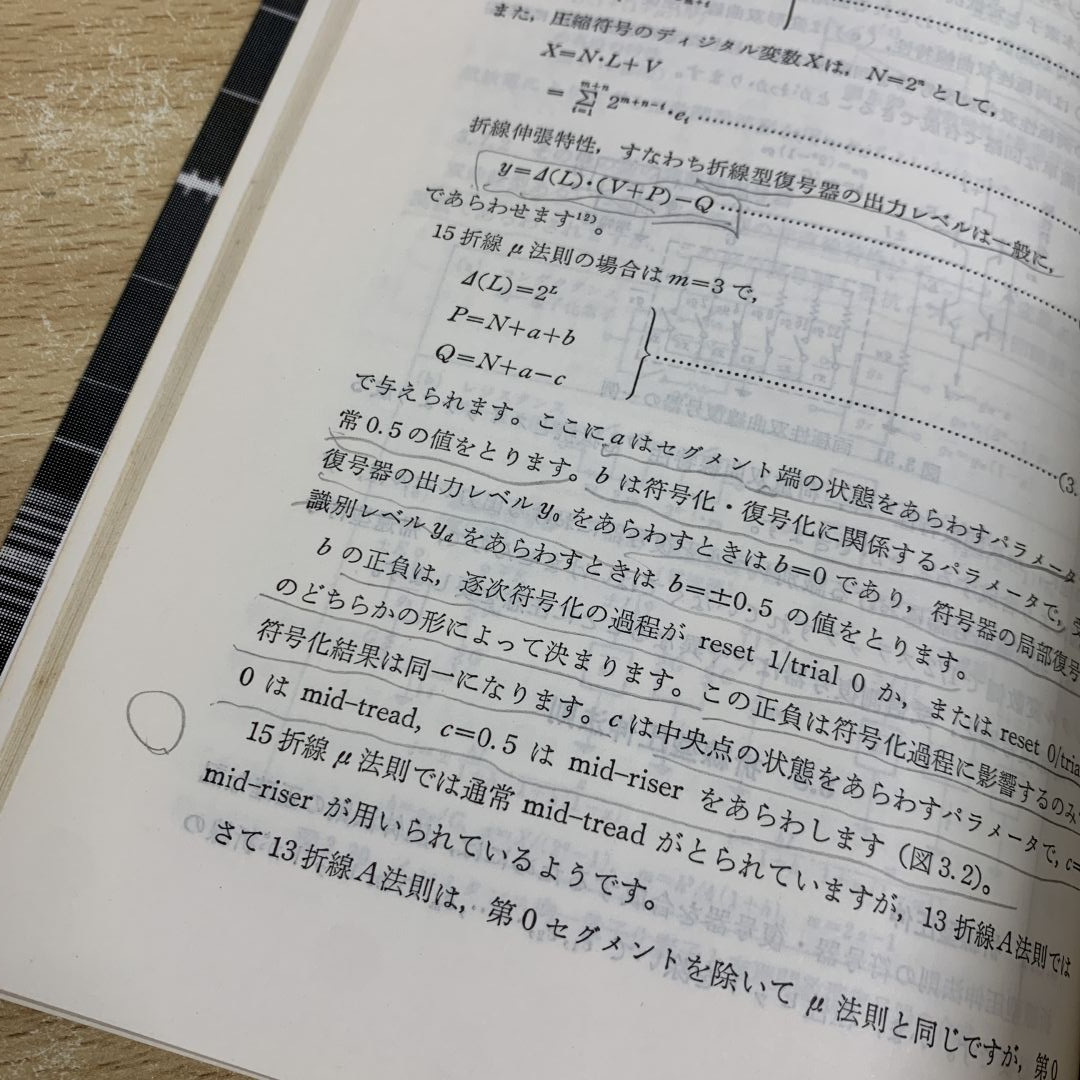 また，圧縮符号のディジタル変数Xは，N=2ⁿとして，
X=N·L+V
=∑_{i=1}^{m+n} 2^{m+n-i}·e_i
折線伸張特性，すなわち折線型復号器の出力レベルは一般に，
y=Δ(L)·(V+P)−Q
であらわせます¹²⁾。
15折線μ法則の場合はm=3で，
Δ(L)=2^L
P=N+a+b
Q=N+a−c
(3.
で与えられます。ここにaはセグメント端の状態をあらわすパラメータ
常0.5の値をとります。bは符号化・復号化に関係するパラメータで，受
復号器の出力レベルy₀をあらわすときはb=0であり，符号器の局部復号
識別レベルy_dをあらわすときは b=±0.5 の値をとります。
bの正負は，逐次符号化の過程が reset 1/trial 0 か，または reset 0/tria
のどちらかの形によって決まります。この正負は符号化過程に影響するのみ
符号化結果は同一になります。cは中央点の状態をあらわすパラメータで，c=
0 は mid–tread，c=0.5 は mid–riser をあらわします（図3.2）。
15折線μ法則では通常 mid–tread がとられていますが，13折線A法則では
mid–riser が用いられているようです。
さて13折線A法則は，第0セグメントを除いて μ 法則と同じですが，第0